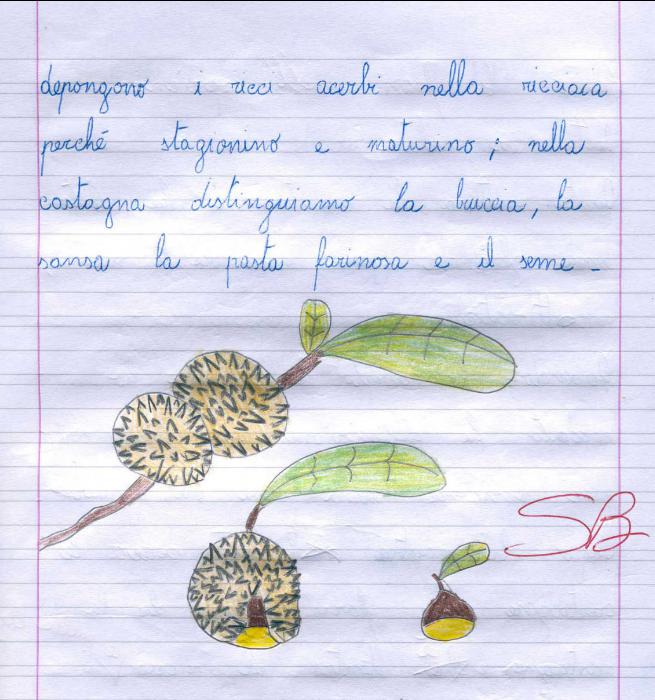 depongono i ricci acerbi nella ricciaia
perché stagionino e maturino; nella
castagna distinguiamo la buccia, la
sansa la pasta farinosa e il seme -
SB